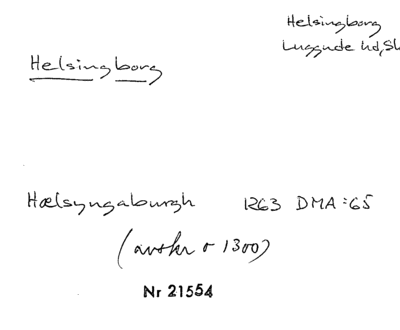 Helsingborg
Luggude hd, Sk
Helsingborg
Hælsyngaburgh 1263 DMA:65
(avskr o 1300)
Nr 21554